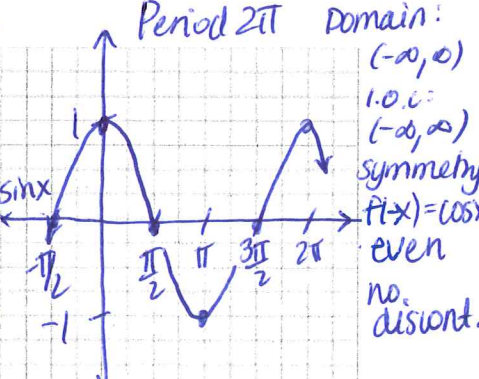 Period 2π
Domain:
(-∞,∞)
I.O.C:
(-∞,∞)
symmetry
f(-x)=cosx
even
no
discont.
1
sinx
-π/2
π/2
π
3π/2
2π
-1